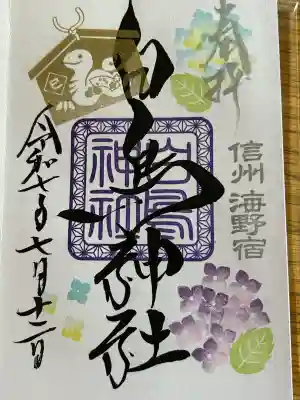 奉拝
信州 海野宿
白鳥神社
白鳥神社
令和七年七月十二日
巳